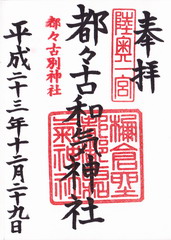 奉拝
陸奥一宮
都々古和気神社
都々古別神社
平成二十三年十二月二十九日